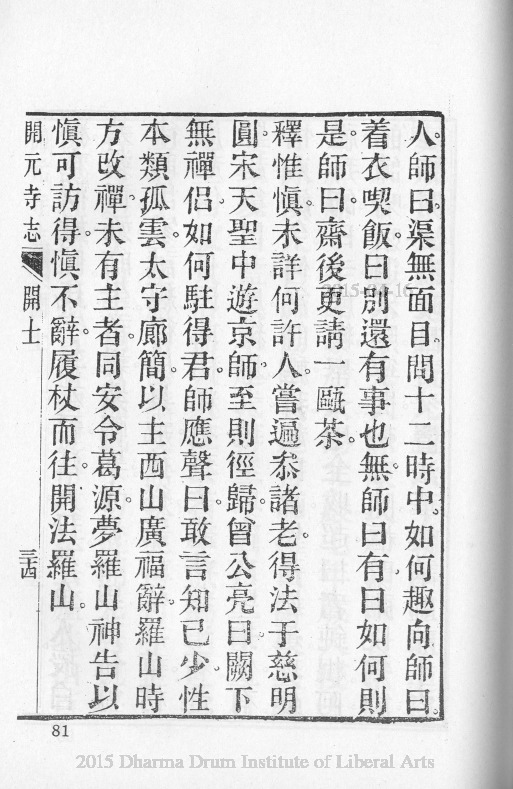 人。師曰。渠無面目。問十二時中。如何趣向。師曰。
着衣喫飯。曰別還有事也。無。師曰。有。曰如何則
是。師曰。齋後更請一甌茶。
釋惟慎。未詳何許人。嘗遍叅諸老。得法于慈明
圓。宋天聖中遊京師。至則徑歸。曾公亮曰。闕下
無禪侶。如何駐得君。師應聲曰。敢言知已少。性
本類孤雲。太守廊簡。以主西山廣福辭。羅山時
方改禪。未有主者。同安令葛源。夢羅山神告以
愼可訪得。愼不辭。履杖而徃。開法羅山。
開元寺志 開士 三四
81
2015-04-10
2015 Dharma Drum Institute of Liberal Arts